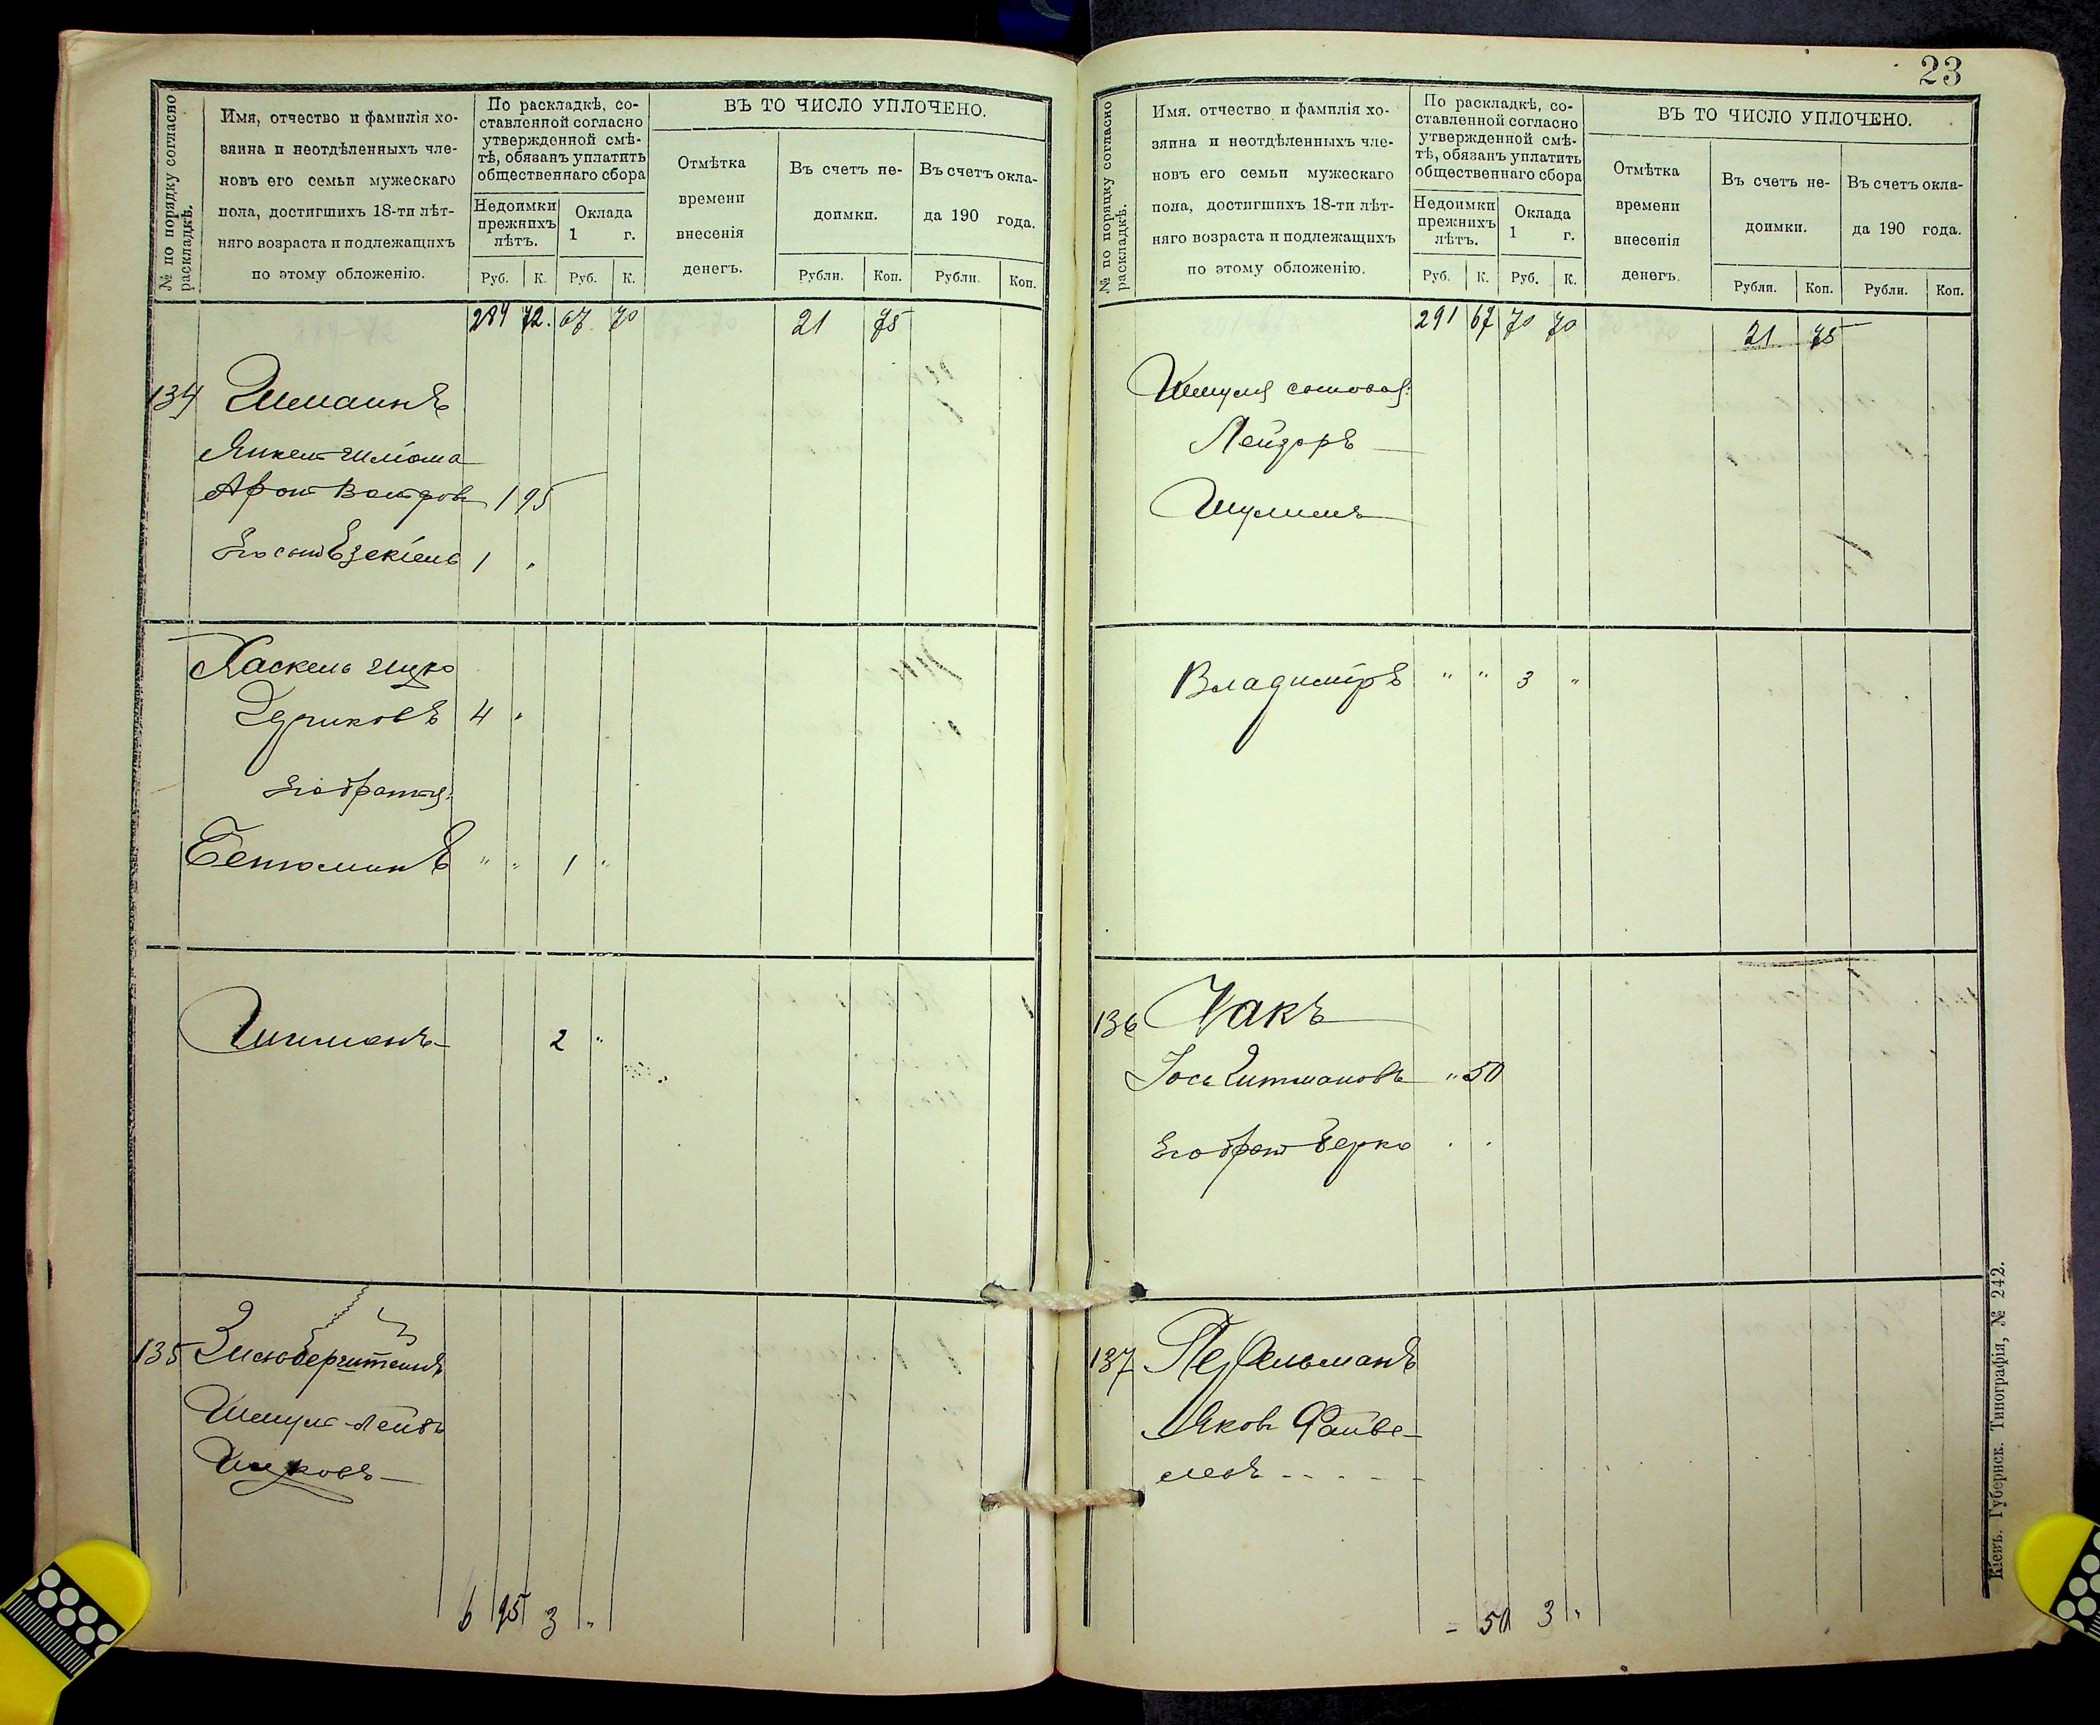 № по порядку согласно раскладкѣ.
Имя, отчество и фамилія хо-
зяина и неотдѣленныхъ чле-
новъ его семьи мужескаго
пола, достигшихъ 18-ти лѣт-
няго возраста и подлежащихъ
по этому обложенію.
По раскладкѣ, со-
ставленной согласно
утвержденной смѣ-
тѣ, обязанъ уплатить
общественнаго сбора
Недоимки
прежнихъ
лѣтъ.
Оклада
1 г.
Руб. К. Руб. К.
ВЪ ТО ЧИСЛО УПЛОЧЕНО.
Отмѣтка
времени
внесенія
денегъ.
Въ счетъ не-
доимки.
Въ счетъ окла-
да 190 года.
Рубли. Коп. Рубли. Коп.
284 72. 67 70 21 75
134
Янкель Шліома
1 95
Его сынъ Езекіель 1 "
Хаскель Ицко
4 "
Его братья:
Бенюминъ " " 1 "
2 "
135
Шмуль-Лейбъ
Ицковъ
6 95 3 "
23
№ по поряцку согласно раскладкѣ.
Имя. отчество и фамилія хо-
зяина и неотдѣленныхъ чле-
новъ его семьи мужескаго
пола, достигшихъ 18-ти лѣт-
няго возраста и подлежащихъ
по этому обложенію.
По раскладкѣ, со-
ставленной согласно
утвержденной смѣ-
тѣ, обязанъ уплатить
общественнаго сбора
Недоимки
прежнихъ
лѣтъ.
Оклада
1 г.
Руб. К. Руб. К.
ВЪ ТО ЧИСЛО УПЛОЧЕНО.
Отмѣтка
времени
внесенія
денегъ.
Въ счетъ не-
доимки.
Въ счетъ окла-
да 190 года.
Рубли. Коп. Рубли. Коп.
291 67 70 70 21 75
Шмуля сыновья:
Лейзоръ
Шулимъ
Владиміръ " " 3 "
136 Чакъ
Іось Гитмановъ " 50
Его братъ Берко
137 Перельманъ
Яковъ Файве-
левъ
= 50 3 "
Кіевъ. Губернск. Типографія, № 242.